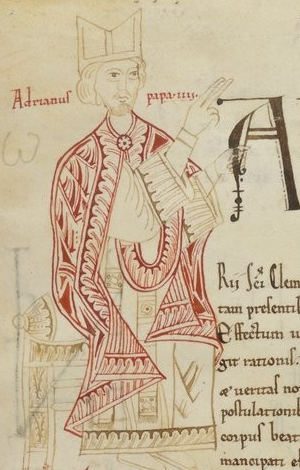 Adrianus papa·iiii·
A
Rij sc̄i Clem
tam presenti
Effectum u
git rationis.
æ ueritas no
postulationib
corpus beat
mancipati et